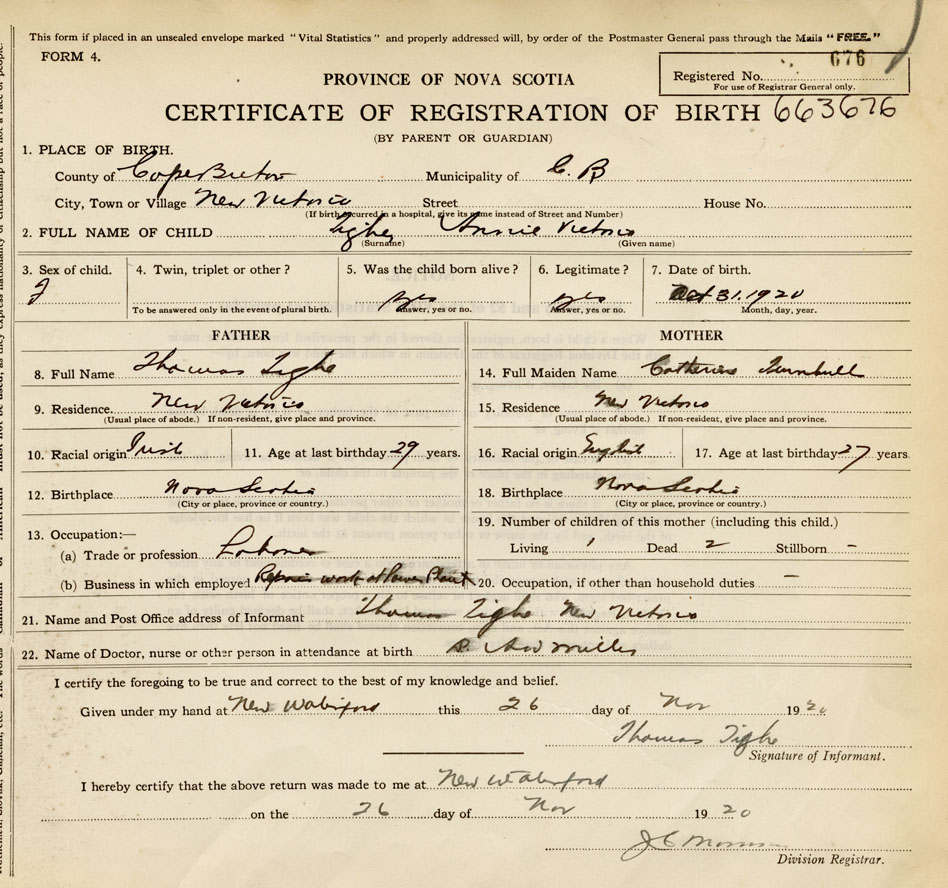 This form if placed in an unsealed envelope marked "Vital Statistics" and properly addressed will, by order of the Postmaster General pass through the Mails "FREE."
FORM 4.
676
Registered No.
For use of Registrar General only.
PROVINCE OF NOVA SCOTIA
CERTIFICATE OF REGISTRATION OF BIRTH 663676
(BY PARENT OR GUARDIAN)
1. PLACE OF BIRTH.
County of Cape Breton Municipality of C. B
City, Town or Village New Victoria Street House No.
(If birth occurred in a hospital, give its name instead of Street and Number)
2. FULL NAME OF CHILD Tighe Annie Victoria
(Surname) (Given name)
3. Sex of child. 4. Twin, triplet or other? 5. Was the child born alive? 6. Legitimate? 7. Date of birth.
F yes yes Oct 31. 1920
To be answered only in the event of plural birth. Answer, yes or no. Answer, yes or no. Month, day, year.
FATHER MOTHER
8. Full Name Thomas Tighe 14. Full Maiden Name Catherine Turnbull
9. Residence. New Victoria 15. Residence New Victoria
(Usual place of abode.) If non-resident, give place and province. (Usual place of abode.) If non-resident, give place and province.
10. Racial origin Irish 11. Age at last birthday 29 years. 16. Racial origin English 17. Age at last birthday 27 years
12. Birthplace Nova Scotia 18. Birthplace Nova Scotia
(City or place, province or country.) (City or place, province or country.)
19. Number of children of this mother (including this child.)
13. Occupation:—
(a) Trade or profession Laborer Living 1 Dead 2 Stillborn -
(b) Business in which employed Repair work at Power Plant 20. Occupation, if other than household duties -
21. Name and Post Office address of Informant Thomas Tighe New Victoria
22. Name of Doctor, nurse or other person in attendance at birth
I certify the foregoing to be true and correct to the best of my knowledge and belief.
Given under my hand at New Waterford this 26 day of Nov 1920
Thomas Tighe
Signature of Informant.
I hereby certify that the above return was made to me at New Waterford
on the 26 day of Nov 1920
Division Registrar.